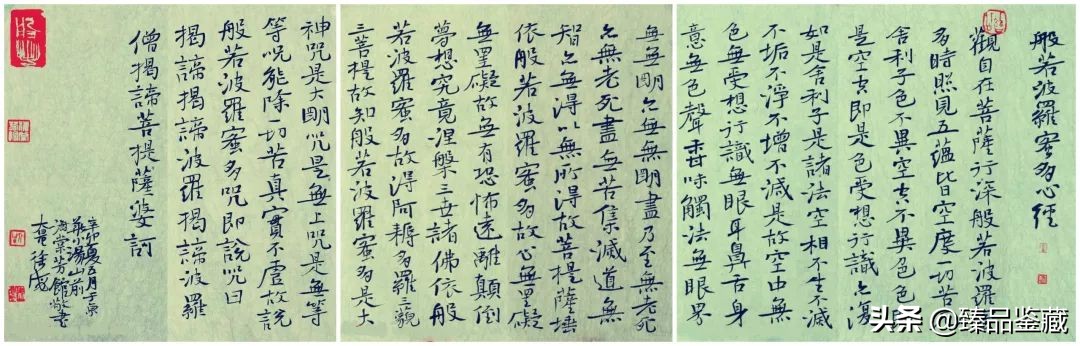 般若波羅蜜多心經
觀自在菩薩行深般若波羅
多時照見五蘊皆空度一切苦
舍利子色不異空空不異色色
是空空即是色受想行識亦復
如是舍利子是諸法空相不生不滅
不垢不淨不增不減是故空中無
色無受想行識無眼耳鼻舌身
意無色聲香味觸法無眼界
無無明亦無無明盡乃至無老死
亦無老死盡無苦集滅道無
智亦無得以無所得故菩提薩埵
依般若波羅蜜多故心無罣礙
無罣礙故無有恐怖遠離顛倒
夢想究竟涅槃三世諸佛依般
若波羅蜜多故得阿耨多羅三藐
三菩提故知般若波羅蜜多是大
神咒是大明咒是無上咒是無等
等咒能除一切苦真實不虛故說
般若波羅蜜多咒即說咒曰
揭諦揭諦波羅揭諦波羅
僧揭諦菩提薩婆訶
辛卯夏五月于京
小湯山前
海棠芳館敬書
头条 @臻品鉴藏